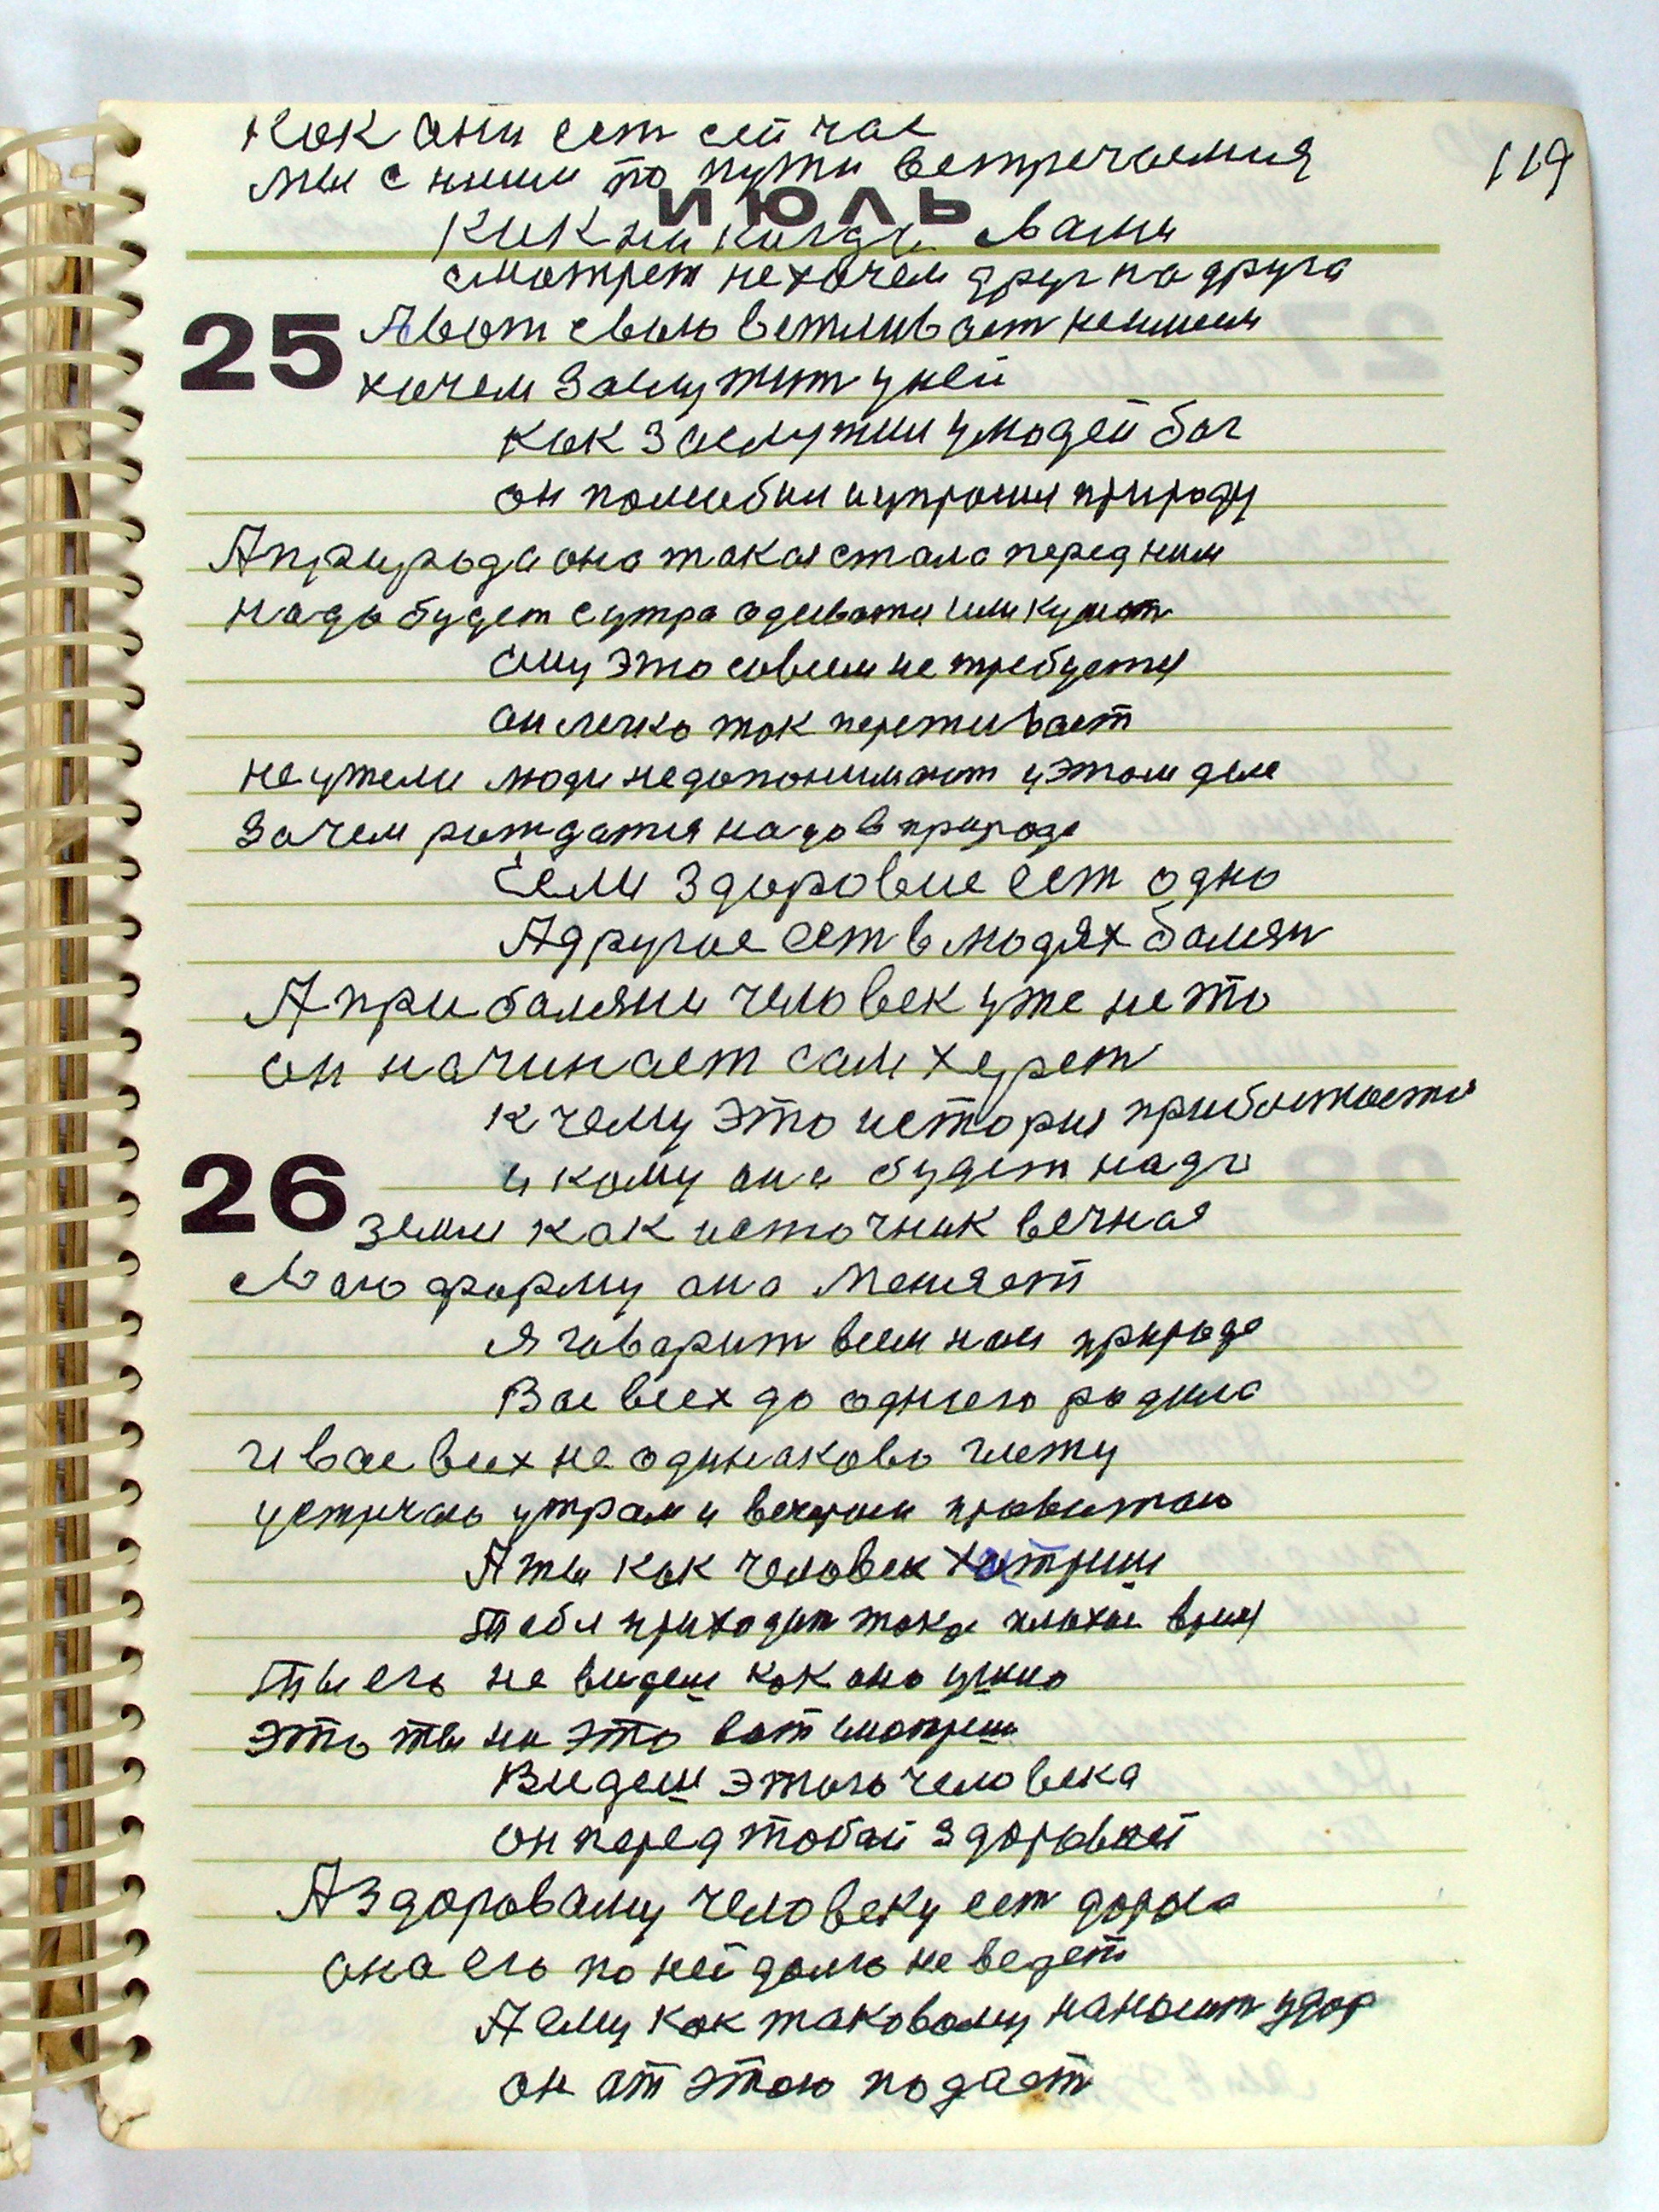 Как они ест сейчас
119
мы с ними по пути встречаемия
ИЮЛЬ
как никогда свами
смотрет не хочем друг на друга
25 А вот свою вежливаст
хочем заслужит у ней
как заслужил у людей бог
он полюбил и упросил природу
А природа она такая стала перед ним
надо будет сутра одевати или кушат
ему это совсем не требуетя
он легко так переживает
неужели люди недопонимают у этом деле
Зачем рождатия надо в природе
Если здоровие ест одно
А другое ест в людях
А при человек уже не то
он начинает сам херет
к чему это история
и кому она будет надо
26 земля как источник вечная
Маю форму она меняет
я говорит всем нам природа
Вас всех до одного родила
и вас всех не одинаково
устичаю утрам и вечером
А ты как человек хитриш
тебя приходит така плохое время
ты его не видеш как оно
это ты на это вот смотреш
Видеш этого человека
он перед тобой здоровый
А здоровому человеку ест дорога
она его по ней долго не ведет
А ему как таковому наносит удар
он от этою подает